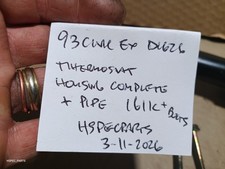 93 CIVIC EX D16Z6
THERMOSTAT
HOUSING COMPLETE
+ PIPE 161K+
BOLTS
HSPECPARTS
3-11-2026